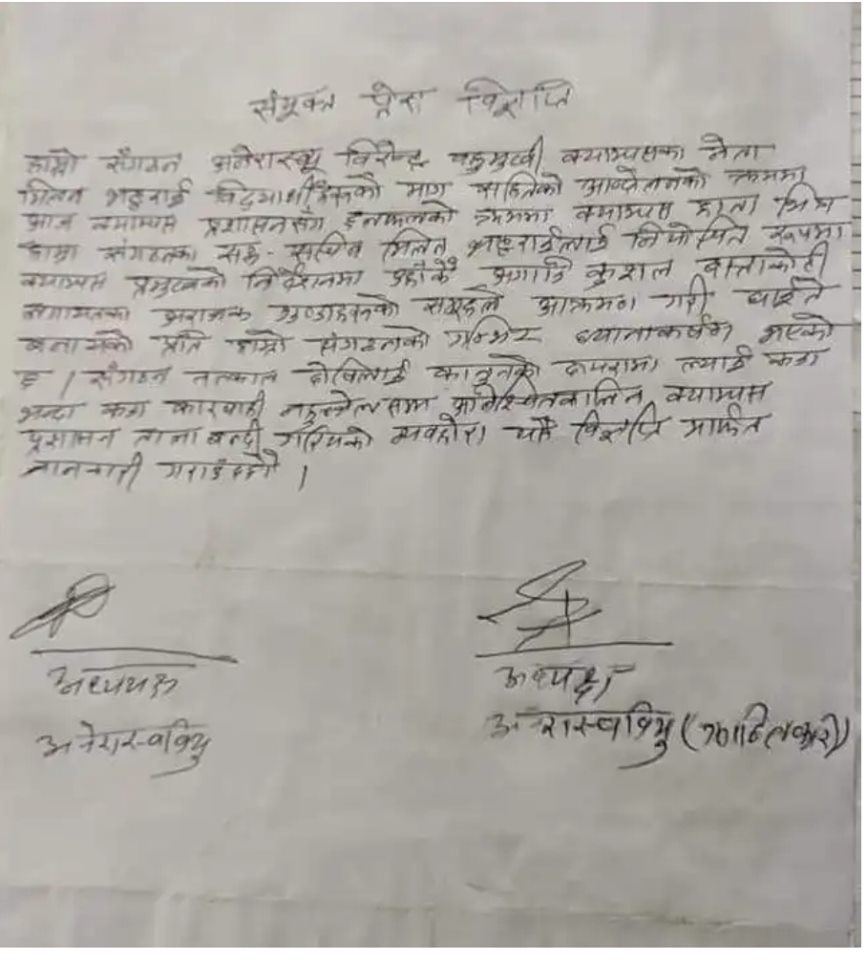 संयुक्त प्रेस विज्ञप्ति
हाम्रो संगठन अनेरास्ववियू विरेन्द्र बहुमुखी क्याम्पसका नेता
मिलन भट्टराई विद्यार्थीहरुको माग सहितको आन्दोलनको क्रममा
आज क्याम्पस प्रशासनसंग छलफलको क्रममा क्याम्पस हाता भित्र
हाम्रा संगठनका सह-सचिव मिलन भट्टराईलाई नियोजित रूपमा
क्याम्पस प्रमुखको निर्देशनमा उहाँकै अगाडि कुशल
लगायतका अराजक गुण्डाहरुको समूहले आक्रमण गरी घाईते
बनाएको प्रति हाम्रो संगठनको गम्भिर ध्यानाकर्षण भएको
छ । संगठन तत्काल दोषिलाई कानूनको दायरामा ल्याई कडा
भन्दा कडा कारवाही नहुन्जेल सम्म अनिश्चितकालिन क्याम्पस
प्रशासन तालाबन्दी गरिएको व्यवहोरा यसै विज्ञप्ति मार्फत
जानकारी गराउदछौ ।
अध्यक्ष
अनेरास्ववियु
अध्यक्ष
अनेरास्ववियु (क्रान्तिकारी)